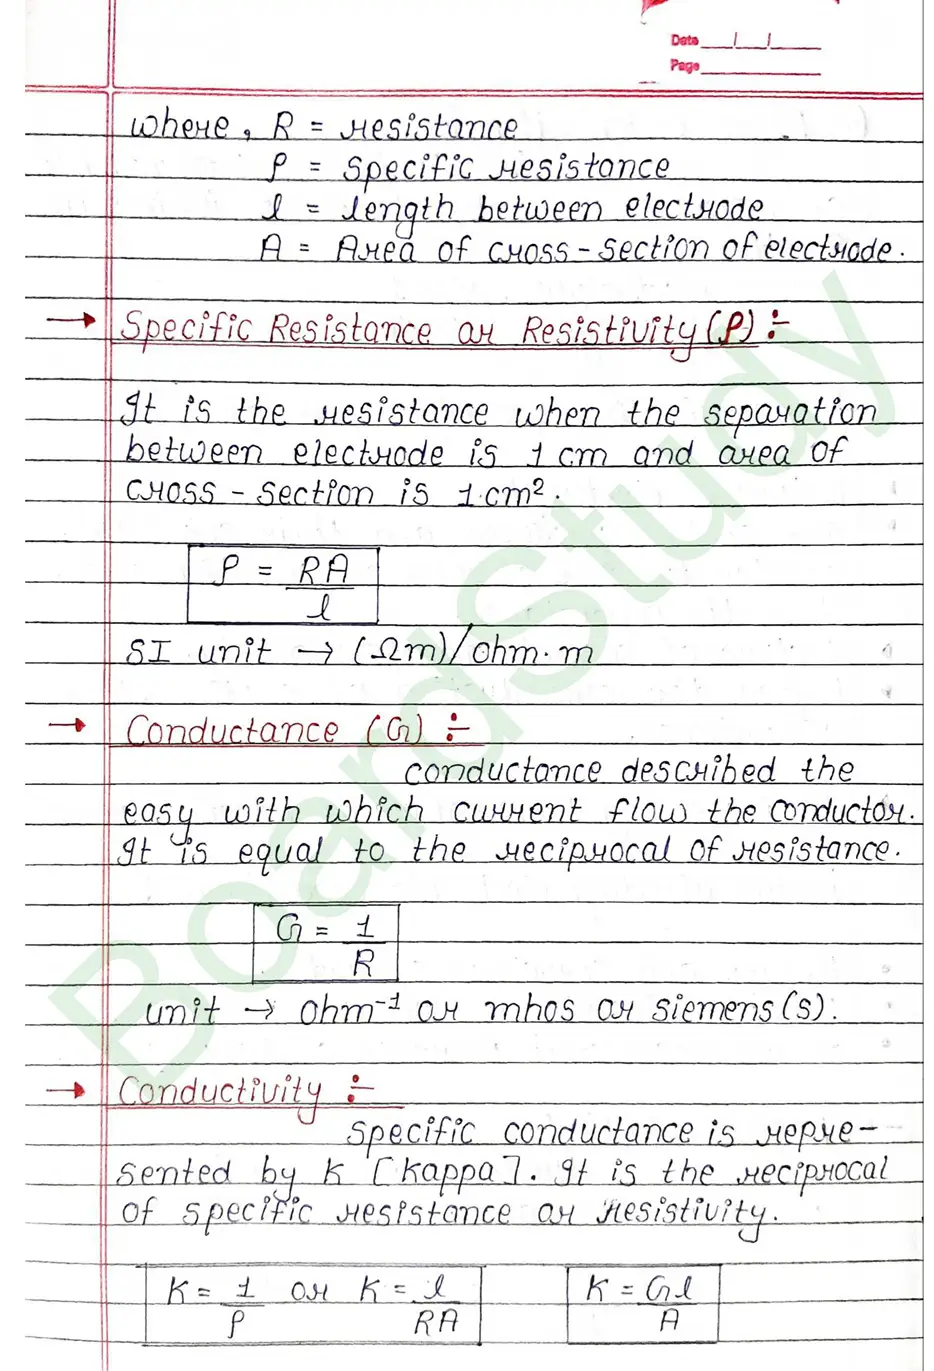 Date __/__/__
Page
where, R = resistance
ρ = Specific resistance
l = length between electrode
A = Area of cross-section of electrode.
→ Specific Resistance or Resistivity (ρ) :-
It is the resistance when the separation
between electrode is 1 cm and area of
cross-section is 1 cm².
ρ = RA/l
SI unit → (Ωm)/ohm·m
→ Conductance (G) :-
conductance described the
easy with which current flow the conductor.
It is equal to the reciprocal of resistance.
G = 1/R
unit → ohm⁻¹ or mhos or siemens (s).
→ Conductivity :-
specific conductance is repre-
sented by K [kappa]. It is the reciprocal
of specific resistance or resistivity.
K = 1/ρ or K = l/RA K = Gl/A
BoardStudy